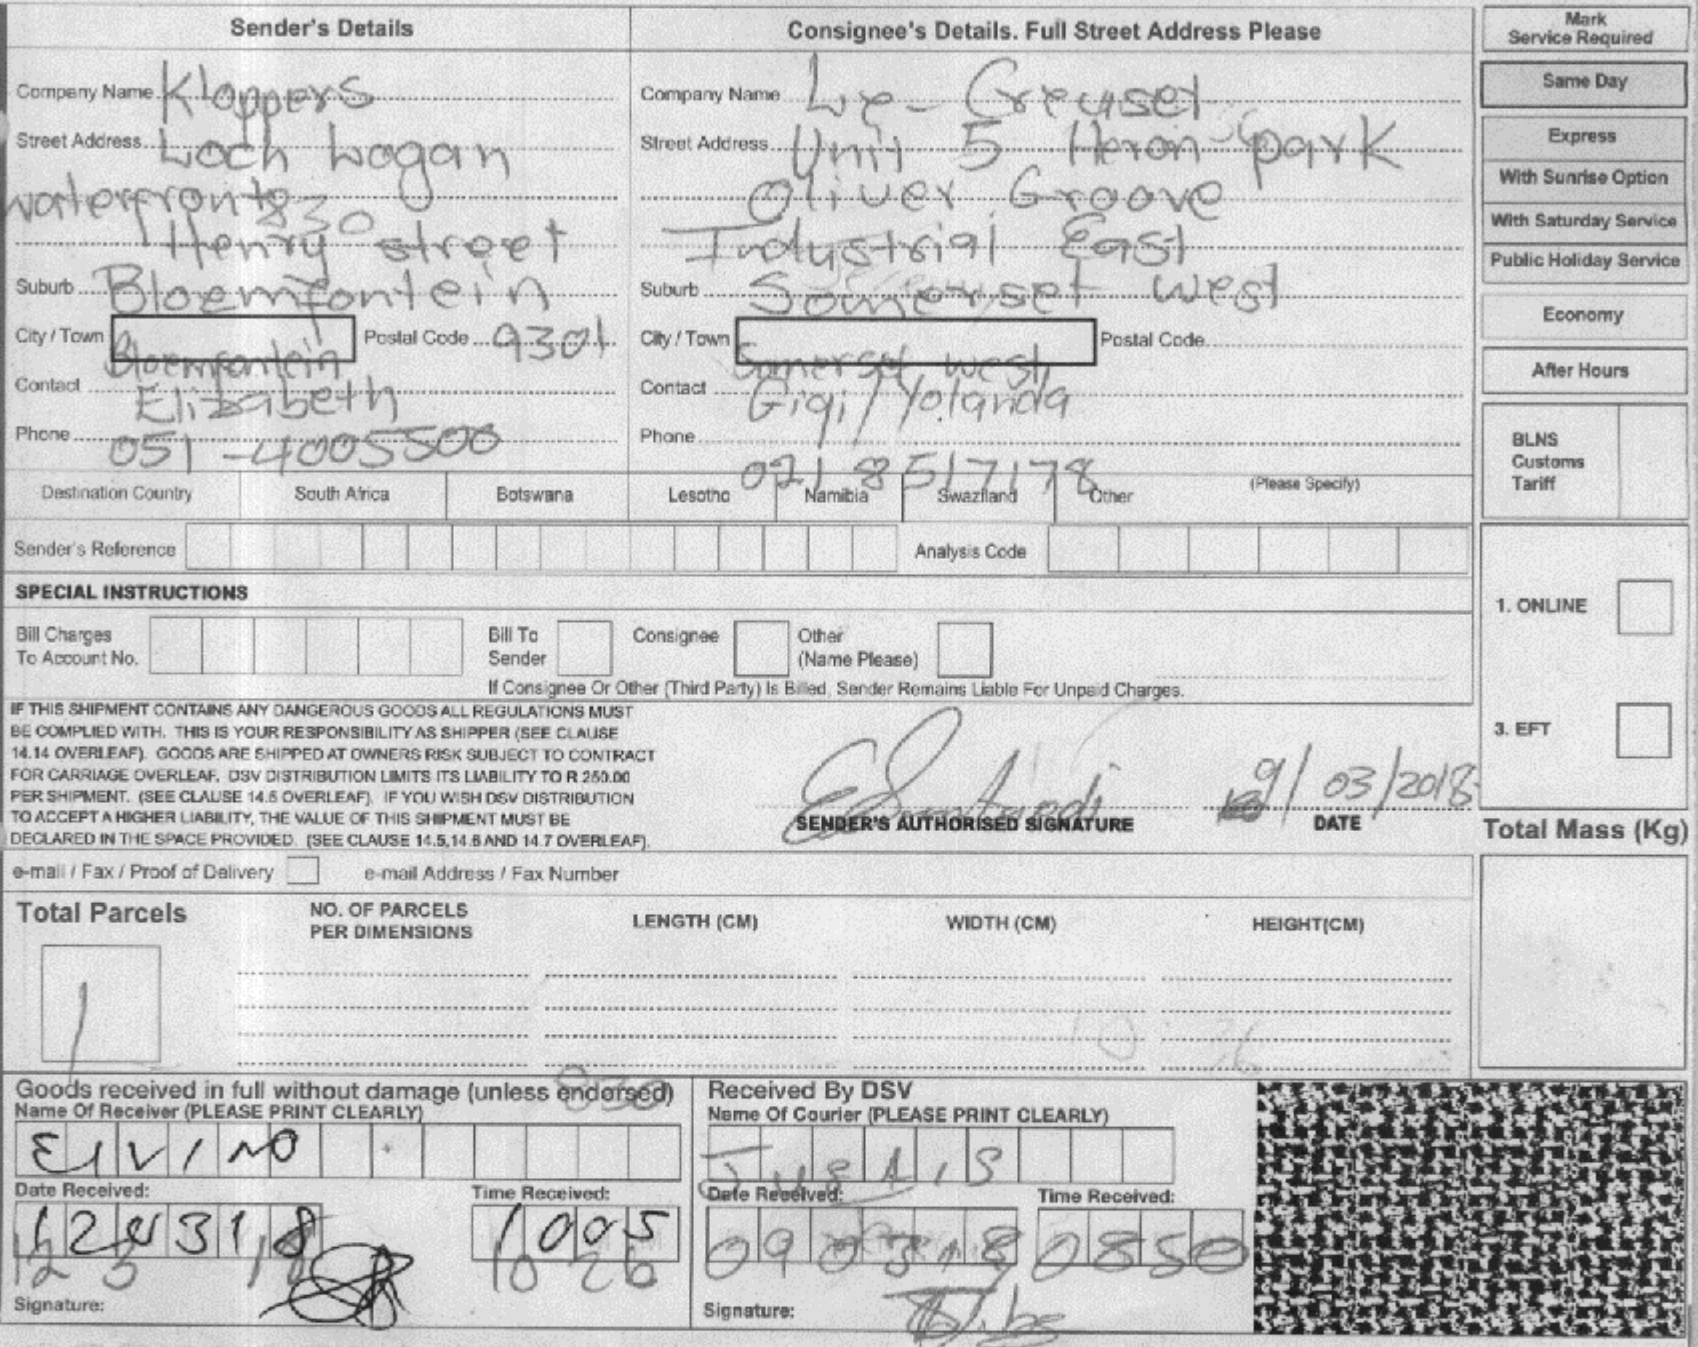 Sender's Details
Company Name Kloppers
Street Address Loch Logan
waterfront 830
Henry street
Suburb Bloemfontein
City / Town Bloemfontein Postal Code 9301
Contact Elizabeth
Phone 051 - 4005500
Consignee's Details. Full Street Address Please
Company Name Le-Creuset
Street Address Unit 5 Heron park
Oliver Groove
Industrial East
Suburb Somerset west
City / Town Somerset west Postal Code
Contact Gigi / Yolanda
Phone 021 8517178
Mark
Service Required
Same Day
Express
With Sunrise Option
With Saturday Service
Public Holiday Service
Economy
After Hours
BLNS
Customs
Tariff
Destination Country South Africa Botswana Lesotho Namibia Swaziland Other (Please Specify)
Sender's Reference Analysis Code
SPECIAL INSTRUCTIONS
Bill Charges
To Account No.
Bill To
Sender
Consignee
Other
(Name Please)
If Consignee Or Other (Third Party) Is Billed, Sender Remains Liable For Unpaid Charges.
1. ONLINE
3. EFT
IF THIS SHIPMENT CONTAINS ANY DANGEROUS GOODS ALL REGULATIONS MUST
BE COMPLIED WITH. THIS IS YOUR RESPONSIBILITY AS SHIPPER (SEE CLAUSE
14.14 OVERLEAF). GOODS ARE SHIPPED AT OWNERS RISK SUBJECT TO CONTRACT
FOR CARRIAGE OVERLEAF. DSV DISTRIBUTION LIMITS ITS LIABILITY TO R 250.00
PER SHIPMENT. (SEE CLAUSE 14.6 OVERLEAF). IF YOU WISH DSV DISTRIBUTION
TO ACCEPT A HIGHER LIABILITY, THE VALUE OF THIS SHIPMENT MUST BE
DECLARED IN THE SPACE PROVIDED. (SEE CLAUSE 14.5,14.6 AND 14.7 OVERLEAF).
SENDER'S AUTHORISED SIGNATURE
9/03/2018
DATE
Total Mass (Kg)
e-mail / Fax / Proof of Delivery e-mail Address / Fax Number
Total Parcels
1
NO. OF PARCELS
PER DIMENSIONS
LENGTH (CM) WIDTH (CM) HEIGHT(CM)
Goods received in full without damage (unless endorsed)
830
Name Of Receiver (PLEASE PRINT CLEARLY)
ELVINO
Date Received: Time Received:
120318 1005
12 3 18 10 26
Signature:
Received By DSV
Name Of Courier (PLEASE PRINT CLEARLY)
Date Received: Time Received:
090318 0850
Signature: